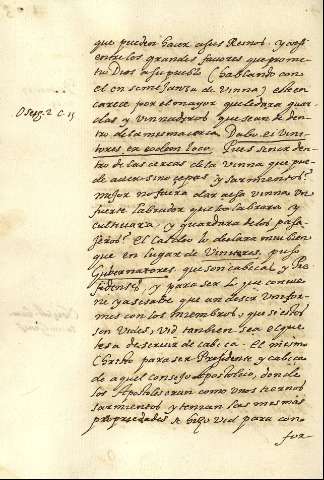 que pueden hacer a sus Reinos. y assi
entre los grandes fauores que prome-
tio Dios a su pueblo (hablando con
el en semejanza de vinna) el en
carece por el mayor que le dara guar
das y vinnaderos que sean de den-
tro de la mesma cerca. Dabo ei vini-
tores ex eodem loco. Pues dentro
de las cercas de la vinna que pue-
de auer sino cepas y sarmientos?
mejor no fuera dar a essa vinna un
fuerte labrador que la labrara y
cultiuara, y guardara de los pasa-
geros? El Caldeo lo declaro mui bien
que en lugar de Vinitores, puso
Gubernatores que son cabeças y Pre-
sidentes, y para ser lo que conuie-
ne ya se sabe que an de ser vnifor-
mes con los miembros, que si estos
son vides, vid tambien sea el que
les a de seruir de cabeça. El mesmo
Christo para ser Presidente y cabeça
de aquel consejo Apostolico, donde
los Apostoles eran como vnos tiernos
sarmientos y tenian las mesmas
propriedades se hizo vid para con
for-